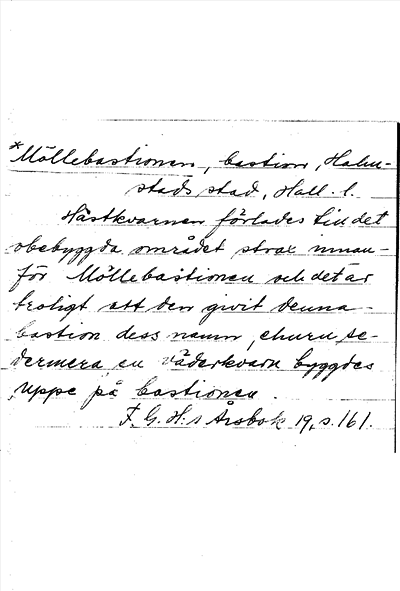 *Möllebastionen, bastion, Halm-
stads stad, Hall. l.
Hästkvarnen förlades till det
obebyggda området strax innan-
för Möllebastionen och det är
troligt att den givit denna
bastion dess namn, churu se-
dermera en väderkvarn byggdes
uppe på bastionen.
F. G. H:s Årsbok 19, s. 161.